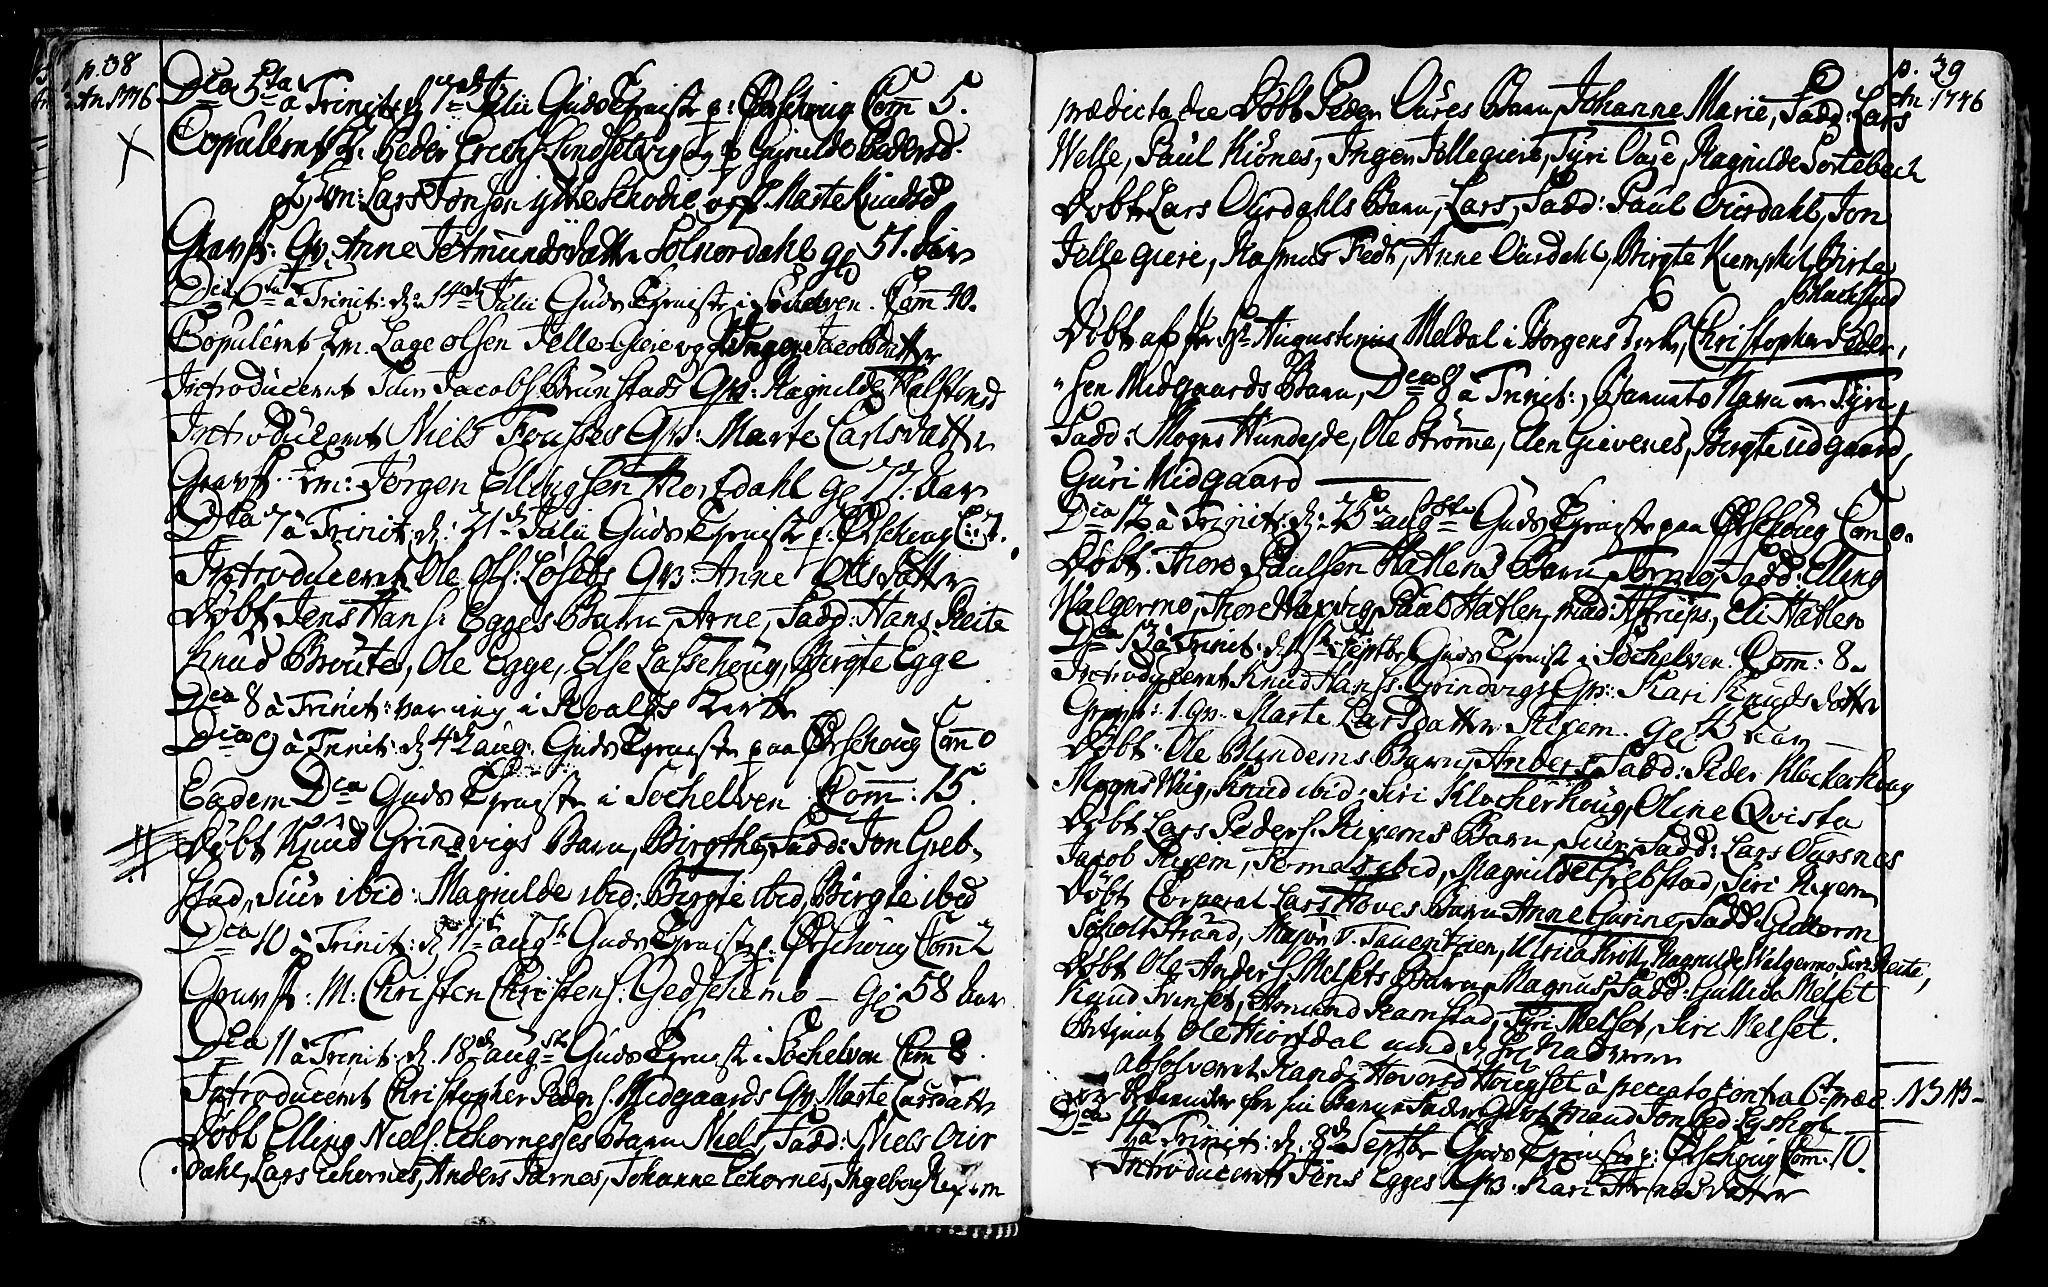 p. 38
An 1776
Dca 5ta à Trinit: d. 7de Julii Guds Tjenniste p: Ørschoug Com 5.
Copulernt Peder Erichs. Lindsetvig og Gunilde Pedersd.
Em: Lars Jonsen ytte Schodie og Marte Knudsd
Gravf: Qv. Anne Jetmundsdatter Solnordahl gl 51. Aar
Dca 6ta à Trinit: d. 14de Julii Guds Tjenniste i Sochelven. Com 40.
Copulernt Em. Lage Olsen Jelle-Giere og Ingeb Jacobsdatter
Introducernt Siur Jacobs. Brunstads Qv: Ragnilde Halstensd
Introducernt Niels Fousses Qv: Marte Carlsdatter
Gravf: Em: Jørgen Ellingsen Hiortdahl gl 77. Aar
Dca 7 à Trinit: d: 21de Julii Guds Tjenniste p: Ørschoug C: 7.
Introducernt Ole Ols: Løsebs Qv: Anne Olsdatter
Døbt Jens Hans: Egges Barn, Arne, Fadd: Hans Reite
Knud Broute, Ole Egge, Else Lasschoug, Birgte Egge
Dca 8 à Trinit: var ieg i Kirke
Dca 9 à Trinit: d 4de aug: Guds Tjenniste paa Ørschoug Com 0
Eadem Dca Guds Tjenniste i Sochelven Com: 15.
Døbt Knud Grindvigs Barn, Birgthe, Fadd: Jon Greb-
stad, Siur ibid: Magnilde ibid: Birgte ibid, Birgte ibid
Dca 10 à Trinit: d 11te aug: Guds Tjenniste p: Ørschoug Com 2
Gravf: M: Christen Christens: Gedschemo – gl: 58 Aar
Dca 11 à Trinit: d. 18de aug: Guds Tjenniste i Sochelven Com 8.
Introducernt Christopher Peders. Midgaards Qv. Marte Larsdatter
Døbt Elling Niels: Echornesses Barn Niels, Fadd: Niels Our
dahl, Lars Echornes, Anders Tærnes, Johanne Echornes, Ingeborg Rexem
p. 39
An 1776
prædicta die Døbt Peder Oures Barn, Johanne Marie, Fadd: Lars
Welle, Paul Kiønes, Inger Jellegiere, Tyri Oure, Ragnilde Sortebech
Døbt Lars Ourdahls Barn, Lars, Fadd: Paul Ourdahl, Jon
Jellegiere, Rasmus Fedt, Anne Ourdahl, Birgte Kiemphel, Birte
Blachstad
Døbt af Hr Augustinus Meldal i Borgens Kirke, Christopher Peder-
sen Midgaards Barn, Dca 8 à Trinit:, Barnets Navn er Tyri,
Fadd: Mogns Hundejde, Ole Strømme, Elen Gievenes, Birgte Udgaard,
Guri Midgaard
Dca 12 à Trinit: d: 25de aug: Guds Tjenniste paa Ørschoug Com 0.
Døbt. Thore Paulsen Hatlens Barn Jermo, Fadd: Elling
Walgermo, Thore Haxvig, Paul Hatlen, mad: Astrups, Eli Hatlen
Dca 13 à Trinit: d 1ste Septbr Guds Tjenniste i Sochelven. Com: 8.
Introducernt Knud Hans: Grindvigs Qv: Kari Knudsdatter
Gravf: 1 qv. Marte Larsdatter Rexem. gl 45 Aar
Døbt: Ole Blindems Barn, Anders, Fadd: Peder Klockerhoug
Mogns Wiig, Knud ibid, Siri Klockerhoug, Oline Qvista
Døbt Lars Peders. Rexems Barn, Siur, Fadd: Lars Tursnes
Jacob Rexem, ibid, Magnilde Grebstad, Siri Rexem
Døbt Corporal Lars Hoves Barn Anne Gurine, Fadd: Guttorm
Scholtstrand, Major v. Tauentzien, Ulrica Kroll, Ragnilde Walgermo, Siri Reite,
Døbt Ole Anders. Melsets Barn, Magnus, Fadd: Gullich Melset
Knud Svenset, Amund Ramstad, Tyri Melset, Siri Melset.
Betjent Ole Hiortdal med d. hel: Nadvere
absolvernt Randi Hoversd Houchset à peccato contra 6t præc. NB NB –
Dca 14 à Trinit: d. 8de Septbr Guds Tjenniste p: Ørschoug Com: 10.
Introducernt Jens Egges Qv: Kari Arnesdatter